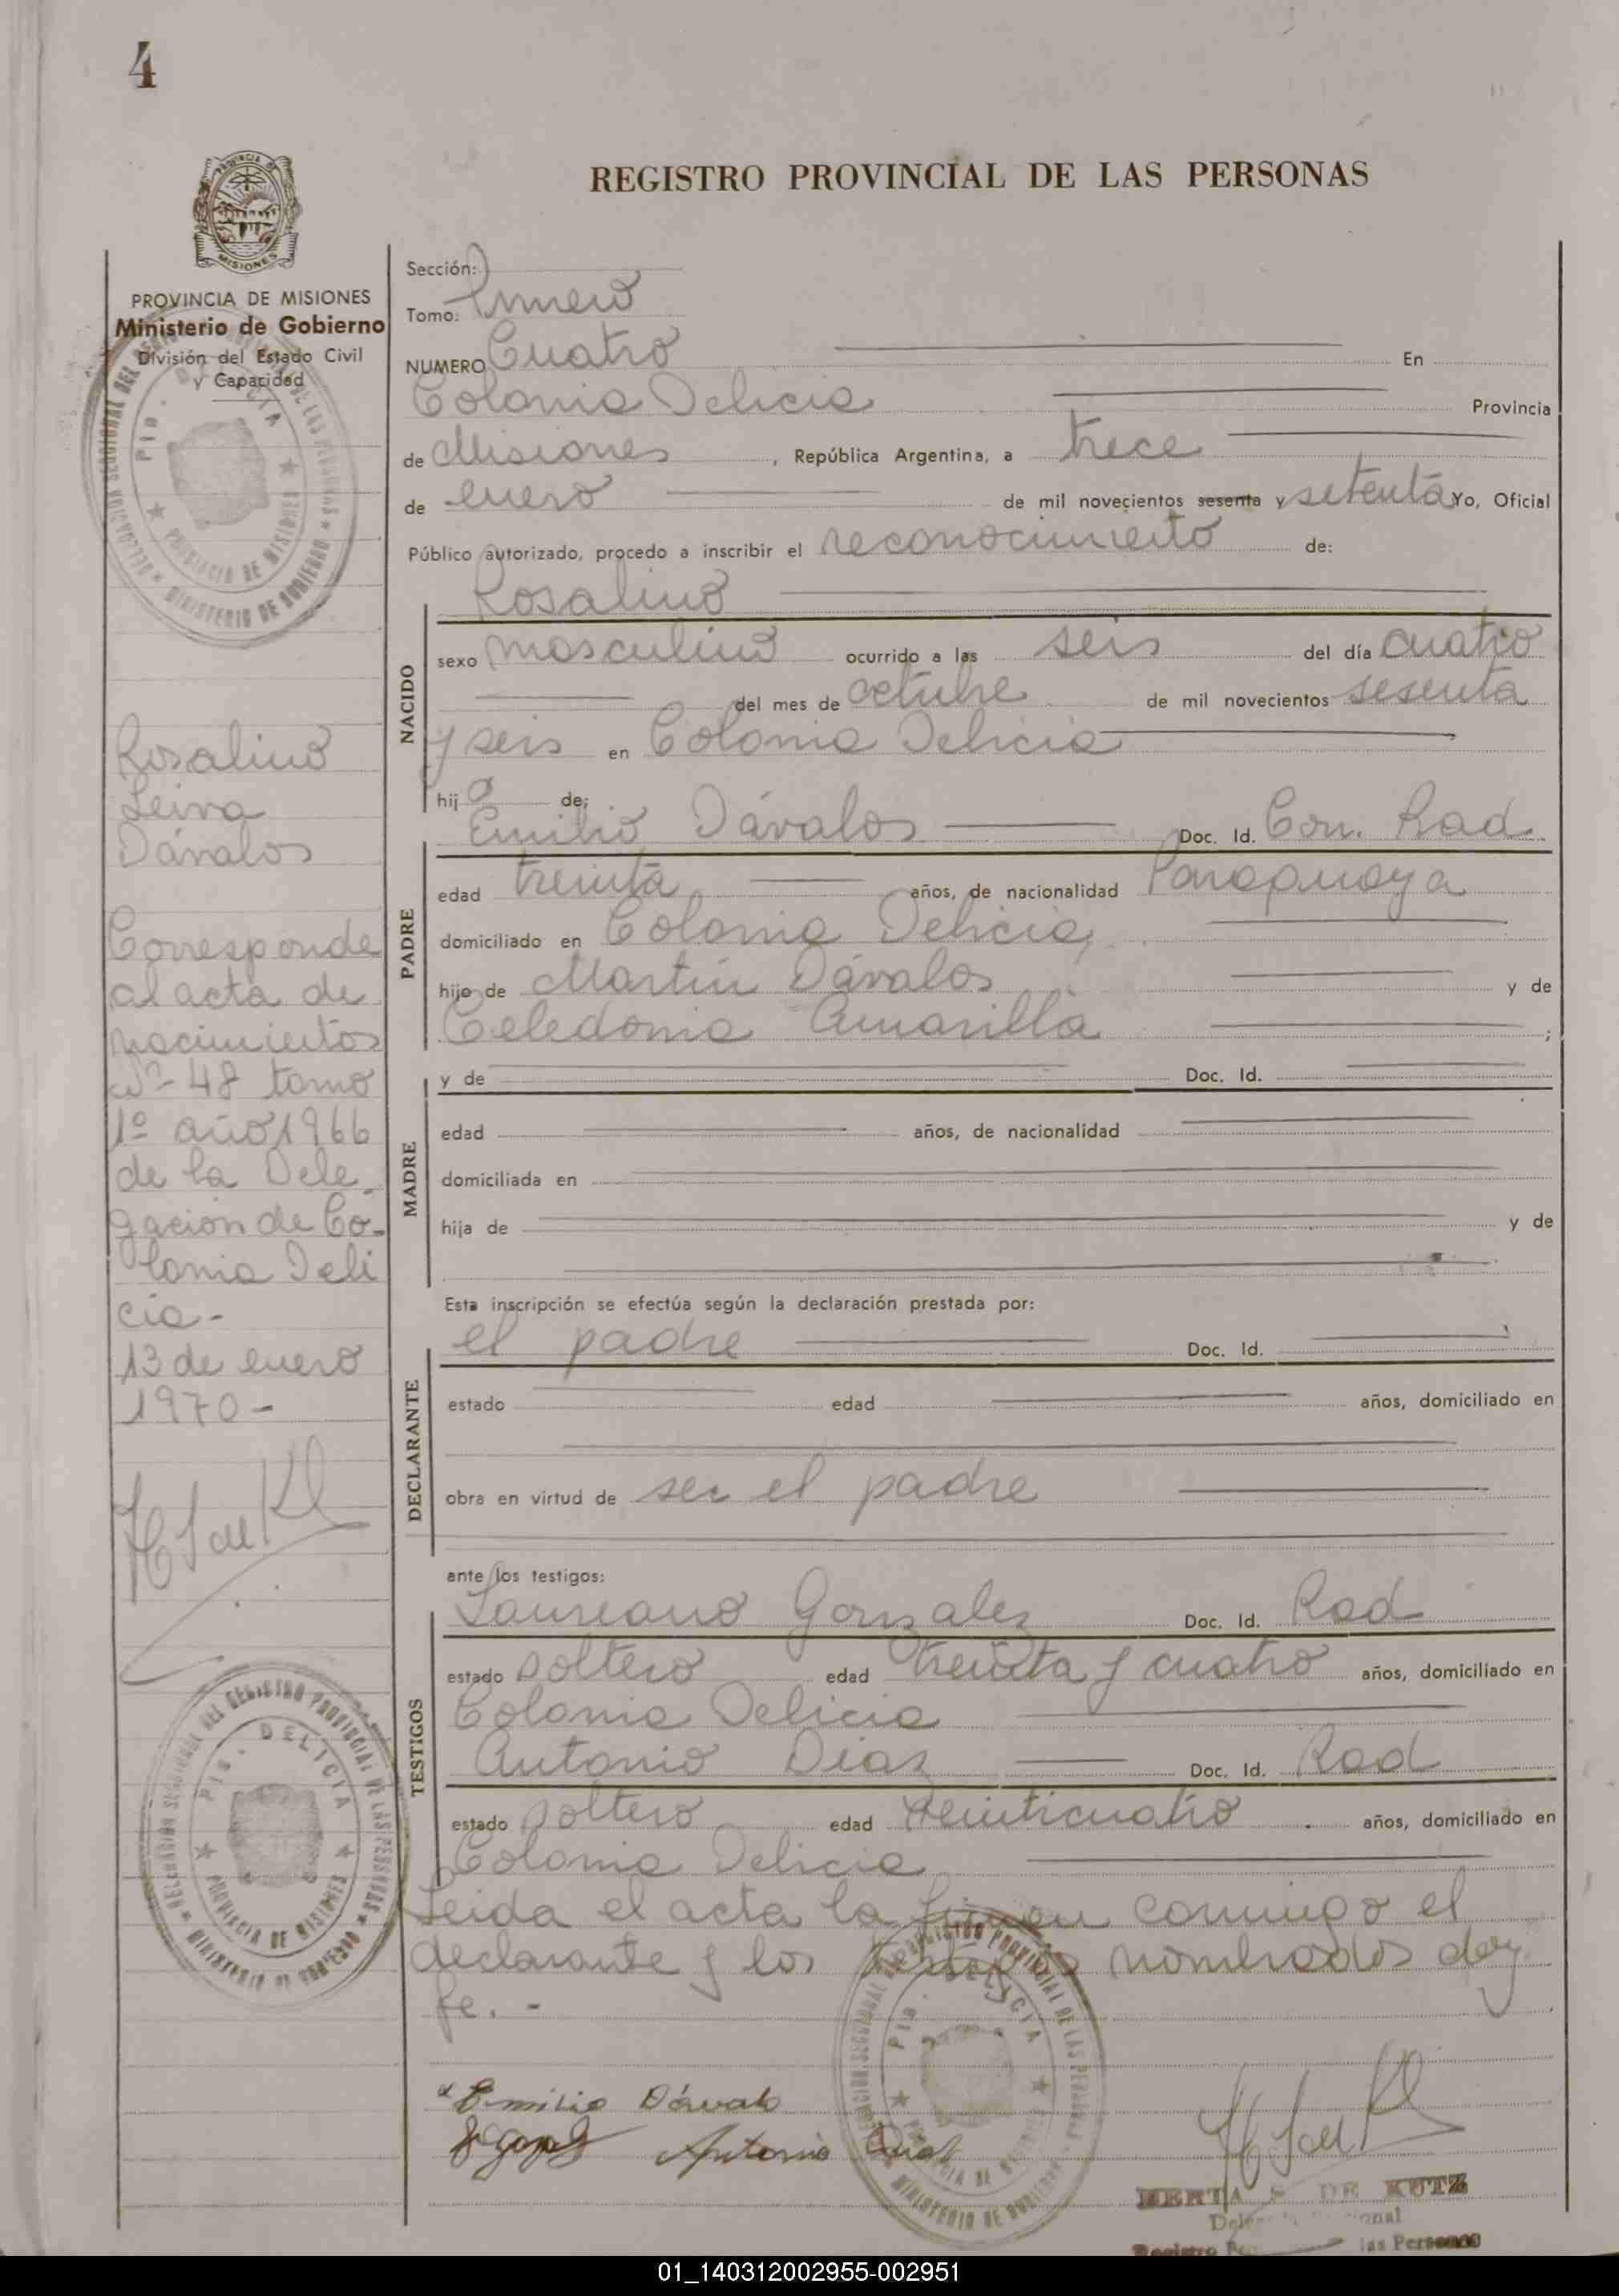 4
REGISTRO PROVINCIAL DE LAS PERSONAS
MISIONES
PROVINCIA DE MISIONES
Ministerio de Gobierno
División del Estado Civil
y Capacidad
Sección:
Tomo: Primero
NUMERO Cuatro En
Colonia Delicia Provincia
de Misiones, República Argentina, a trece
de enero de mil novecientos sesenta y setenta Yo, Oficial
Público autorizado, procedo a inscribir el reconocimiento de:
Rosalino
NACIDO
sexo masculino ocurrido a las seis del día cuatro
del mes de octubre de mil novecientos sesenta
y seis en Colonia Delicia
hijo de:
Emilio Dávalos Doc. Id. Con. Rad
PADRE
edad treinta años, de nacionalidad Paraguaya
domiciliado en Colonia Delicia,
hijo de Martín Dávalos y de
Celedonia Amarilla ;
MADRE
y de Doc. Id.
edad años, de nacionalidad
domiciliada en
hija de y de
Esta inscripción se efectúa según la declaración prestada por:
el padre Doc. Id.
DECLARANTE
estado edad años, domiciliado en
obra en virtud de ser el padre
ante los testigos:
Laureano Gonzalez Doc. Id. Rad
TESTIGOS
estado soltero edad treinta y cuatro años, domiciliado en
Colonia Delicia
Antonio Diaz Doc. Id. Rad
estado soltero edad veinticuatro años, domiciliado en
Colonia Delicia
Leida el acta la firman conmigo el
declarante y los testigos nombrados doy
fe. -
Emilio Dávalo
Antonio Diaz
HERTA S DE KUTZ
Registro las Personas
Rosalino
Leiva
Dávalos
Corresponde
al acta de
nacimientos
Nº- 48 tomo
1º año 1966
de la Dele
gación de Co-
lonia Deli
cia-
13 de enero
1970-
DELEGACION SECCIONAL DEL REGISTRO PROVINCIAL DE LAS PERSONAS
Pto. DELICIA
PROVINCIA DE MISIONES
MINISTERIO DE GOBIERNO
01_140312002955-002951